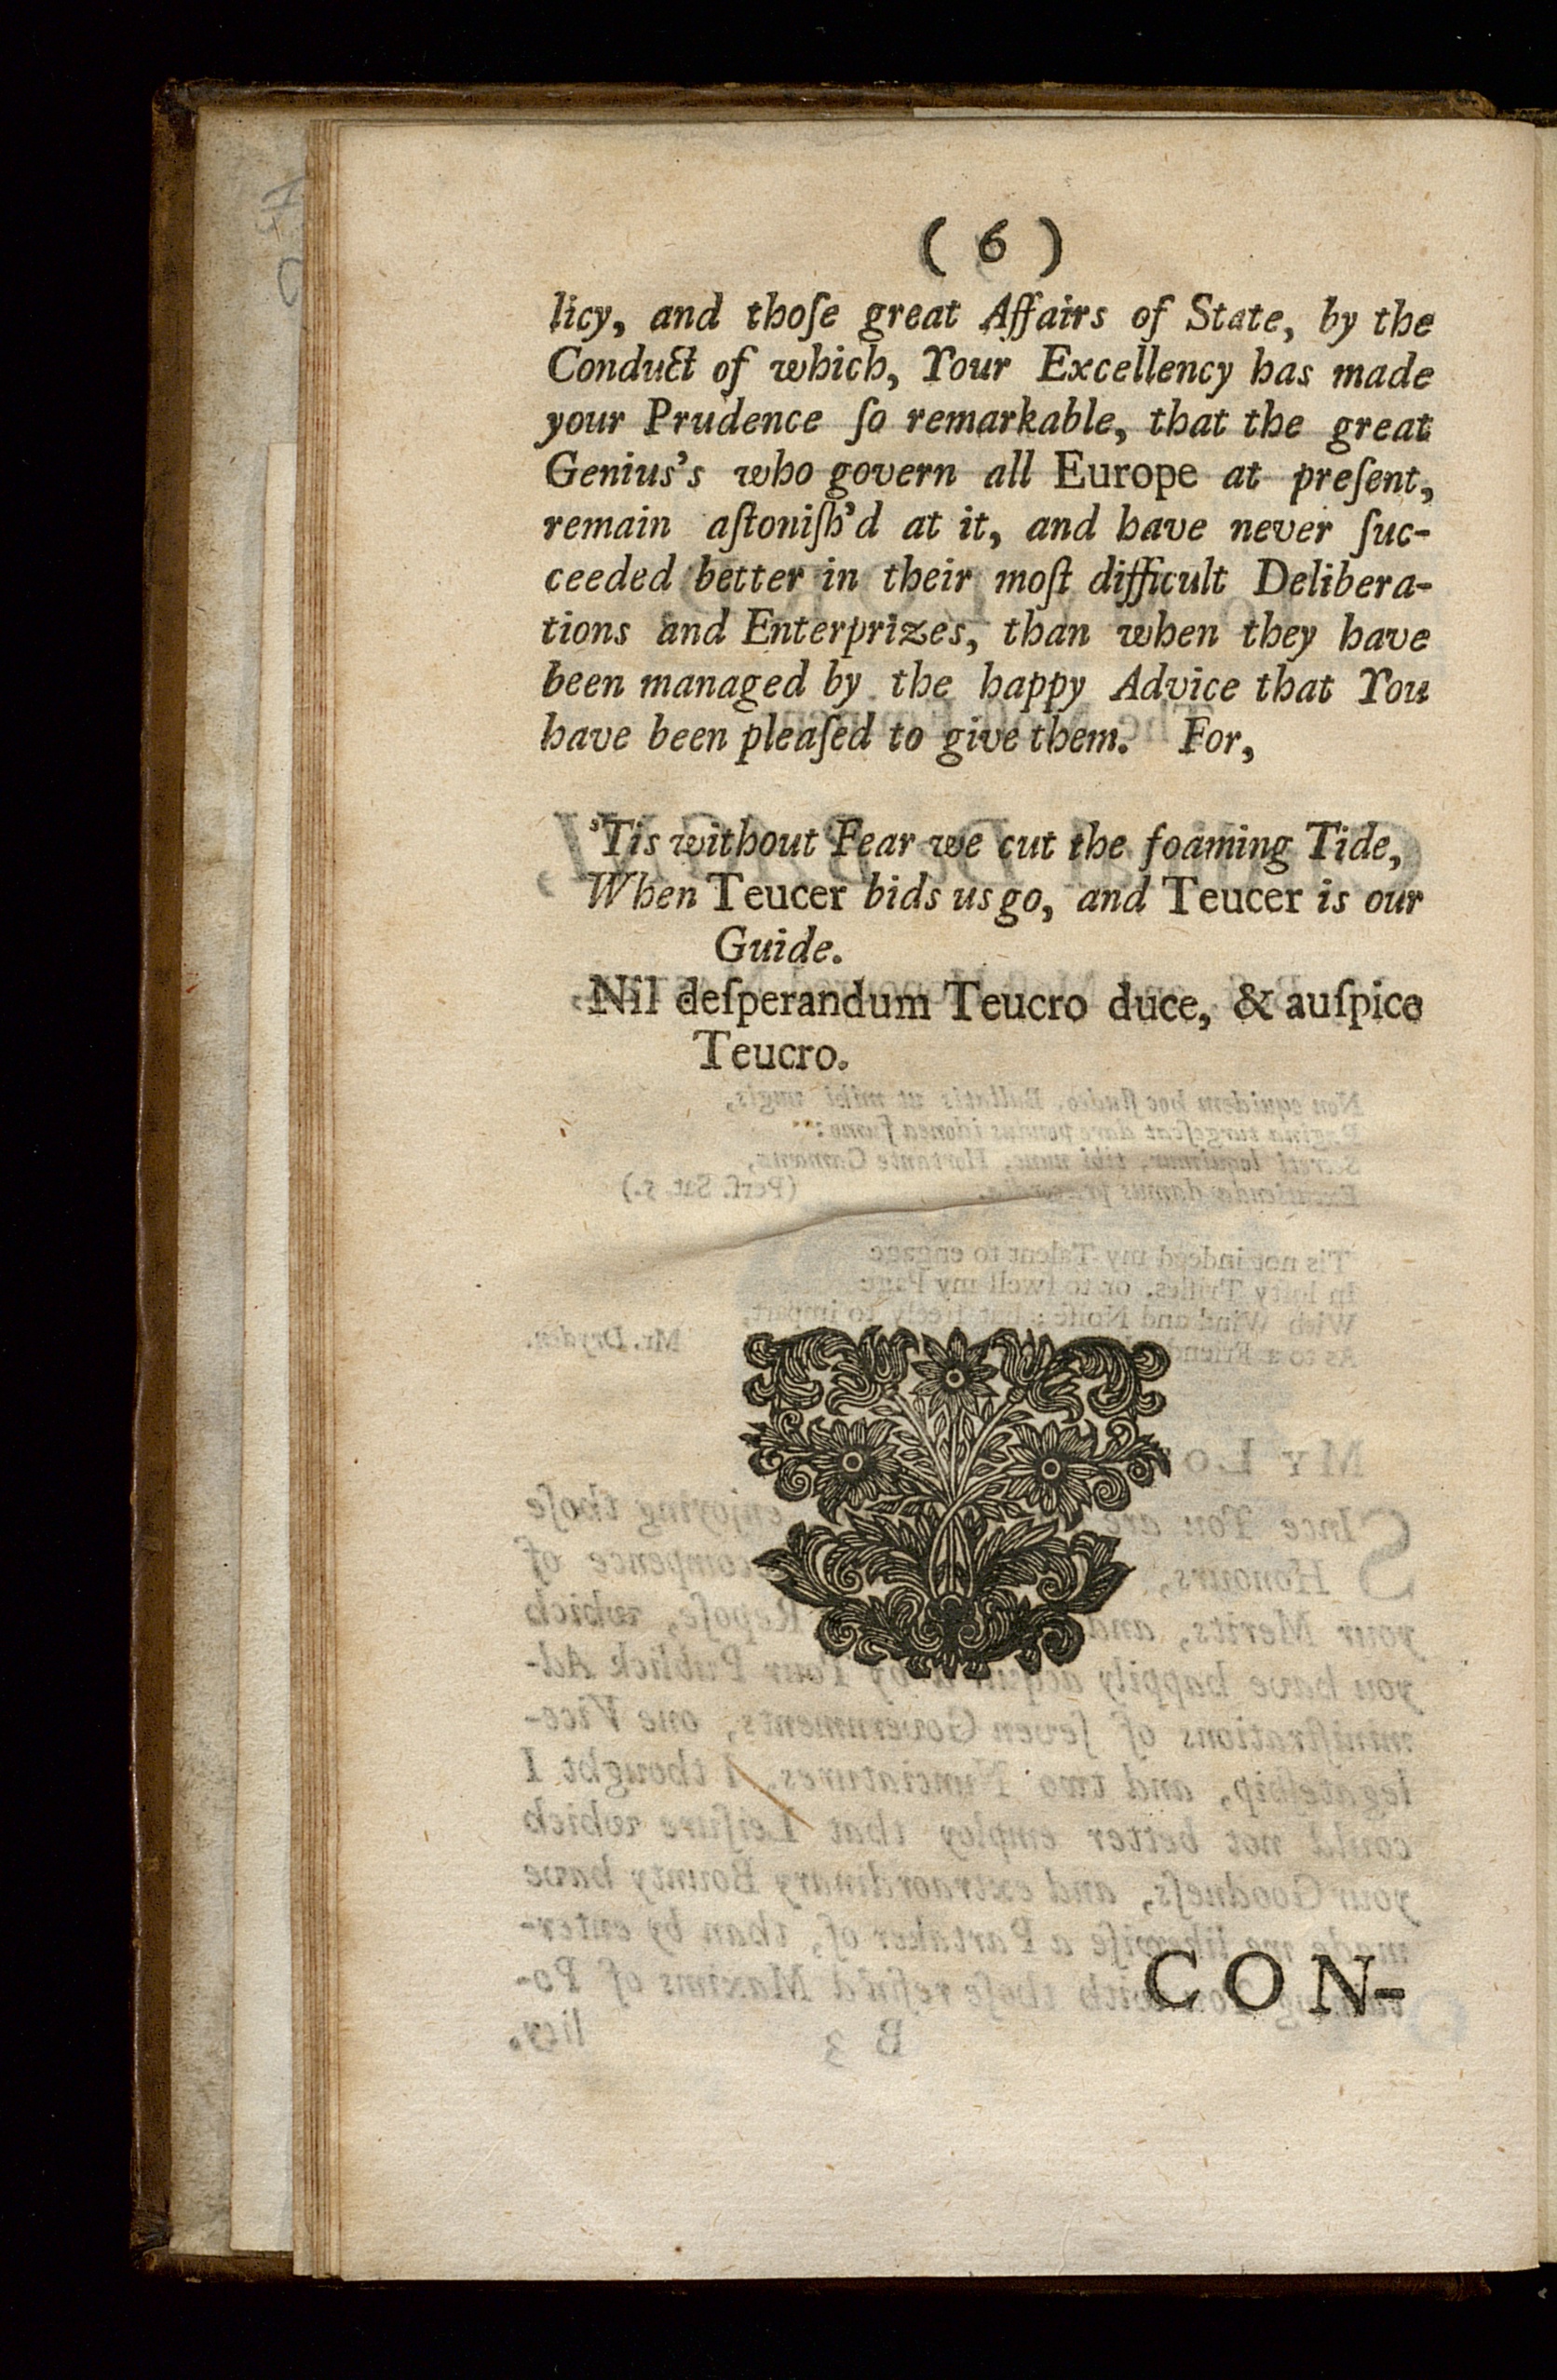 ( 6 )
licy, and thoſe great Affairs of State, by the
Conduct of which, Your Excellency has made
your Prudence ſo remarkable, that the great
Genius's who govern all Europe at preſent,
remain aſtoniſh'd at it, and have never ſuc-
ceeded better in their moſt difficult Delibera-
tions and Enterprizes, than when they have
been managed by the happy Advice that You
have been pleaſed to give them. For,
'Tis without Fear we cut the foaming Tide,
When Teucer bids us go, and Teucer is our
Guide.
Nil deſperandum Teucro duce, & auſpice
Teucro.
CON-